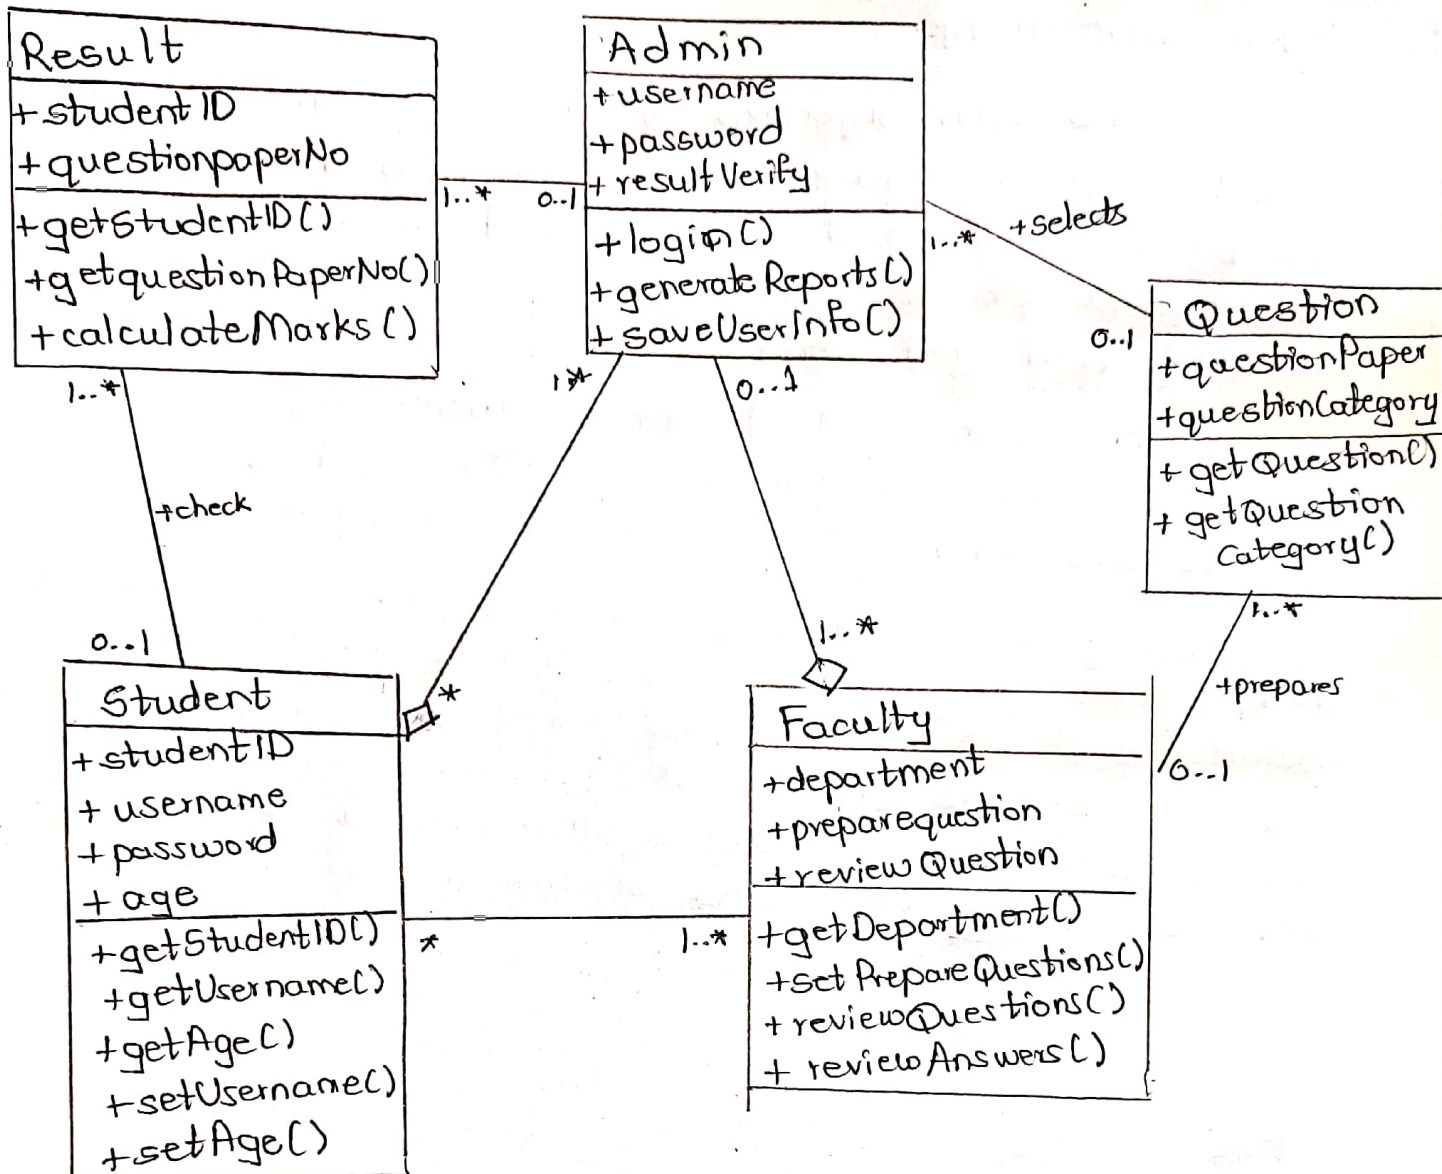 Result
+studentID
+questionpaperNo
+getStudentID()
+getquestionPaperNo()
+calculateMarks()
Admin
+username
+password
+resultVerify
+login()
+generateReports()
+saveUserInfo()
1..*
0..1
1..*
+selects
0..1
Question
+questionPaper
+questionCategory
+getQuestion()
+getQuestion
Category()
1..*
+check
0..1
1.*
*
0..1
1..*
1..*
+prepares
0..1
Student
+studentID
+username
+password
+age
+getStudentID()
+getUsername()
+getAge()
+setUsername()
+setAge()
*
1..*
Faculty
+department
+preparequestion
+reviewQuestion
+getDepartment()
+setPrepareQuestions()
+reviewQuestions()
+reviewAnswers()